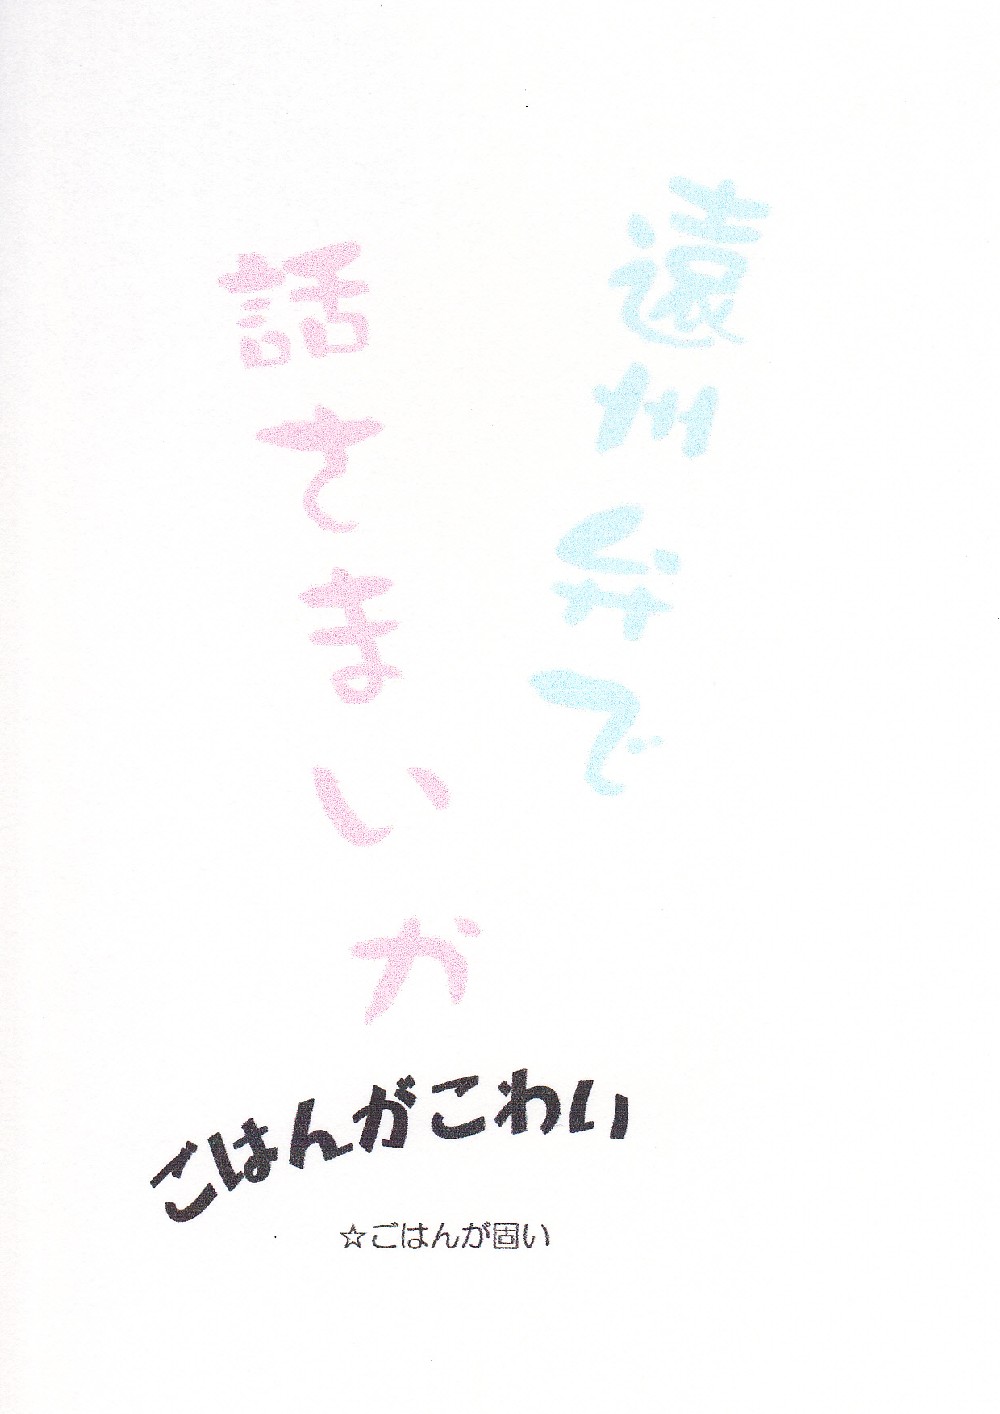 遠州弁で
話さまいか
ごはんがこわい
☆ごはんが固い